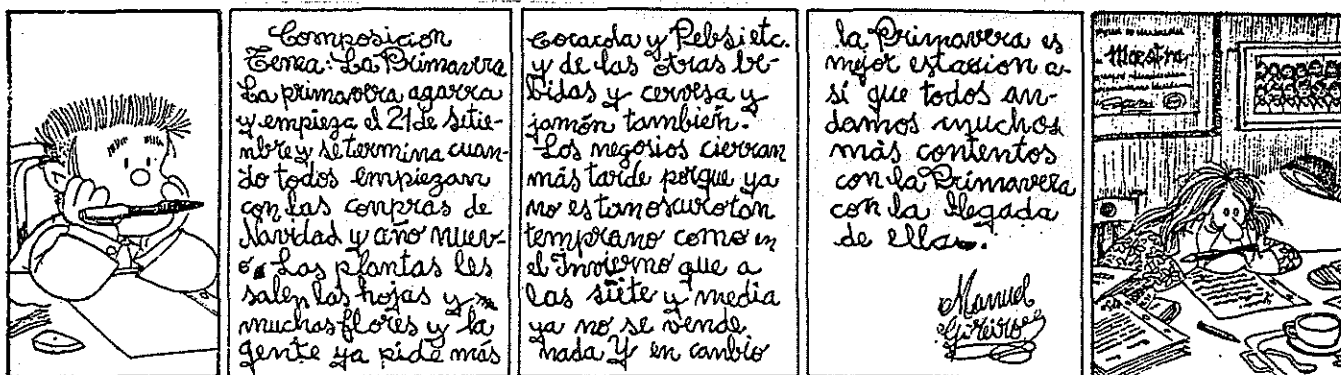 Composicion
Tenca: La Primavera
La primavera agarra
y empieza el 21 de setie-
nbre y se termina cuan-
do todos empiezan
con las conpras de
Navidad y año nuev-
o. Las plantas les
salen las hojas y
muchas flores y la
gente ya pide más
cocacola y Pebsi etc.
y de las otras be-
bidas y cervesa y
jamón también.
Los negosios cierran
más tarde porque ya
no es tanoscurotan
temprano como en
el Invierno que a
las siete y media
ya no se vende
nada Y en canbio
la Primavera es
mejor estacion a-
sí que todos an-
damos muchos
más contentos
con la Primavera
con la llegada
de ella.
Manuel
Goreiro
Maestra